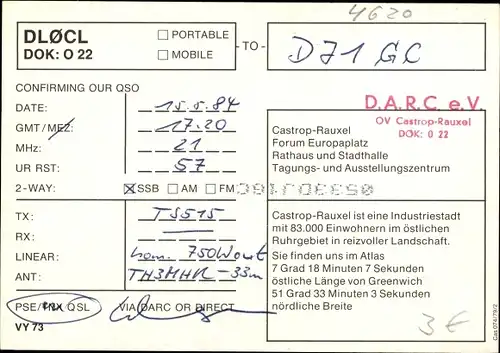 4620
DLØCL
DOK: O 22
PORTABLE
MOBILE
TO
DJ1GC
CONFIRMING OUR QSO
DATE: 15.5.84
GMT/MEZ: 17.20
MHz: 21
UR RST: 57
2-WAY: SSB AM FM
TX: TS515
RX:
LINEAR: hom. 750W out
ANT: TH3MHK - 33m
PSE/TNX QSL VIA DARC OR DIRECT
VY 73
D.A.R.C. e.V.
OV Castrop-Rauxel
DOK: O 22
Castrop-Rauxel
Forum Europaplatz
Rathaus und Stadthalle
Tagungs- und Ausstellungszentrum
Castrop-Rauxel ist eine Industriestadt
mit 83.000 Einwohnern im östlichen
Ruhrgebiet in reizvoller Landschaft.
Sie finden uns im Atlas
7 Grad 18 Minuten 7 Sekunden
östliche Länge von Greenwich
51 Grad 33 Minuten 3 Sekunden
nördliche Breite
3€
Cas 074/79/2